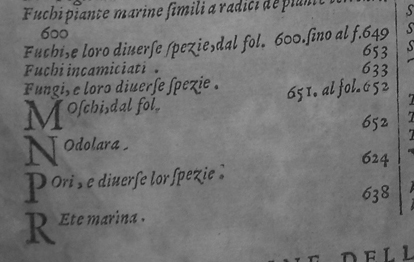 Fuchi piante marine ſimili a radici de piante
600
Fuchi, e loro diuerſe ſpezie, dal fol. 600. ſino al f. 649
Fuchi incamiciati . 653
Fungi, e loro diuerſe ſpezie . 633
MOſchi, dal fol. 651. al fol. 652
NOdolara . 652
POri, e diuerſe lor ſpezie . 624
REte marina . 638